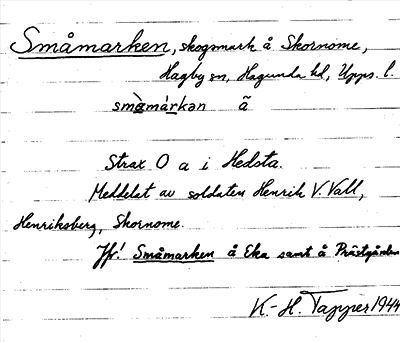 Småmarken, skogsmark å Skornome,
Hagby sn, Hagunda hd, Upps. l.
småmárkan ã
Strax O a i Hedsta.
Meddelat av soldaten Henrik V. Vall,
Henriksberg, Skornome.
Jfr! Småmarken å Eka samt å Prästgården
K.-H. Tapper 1944